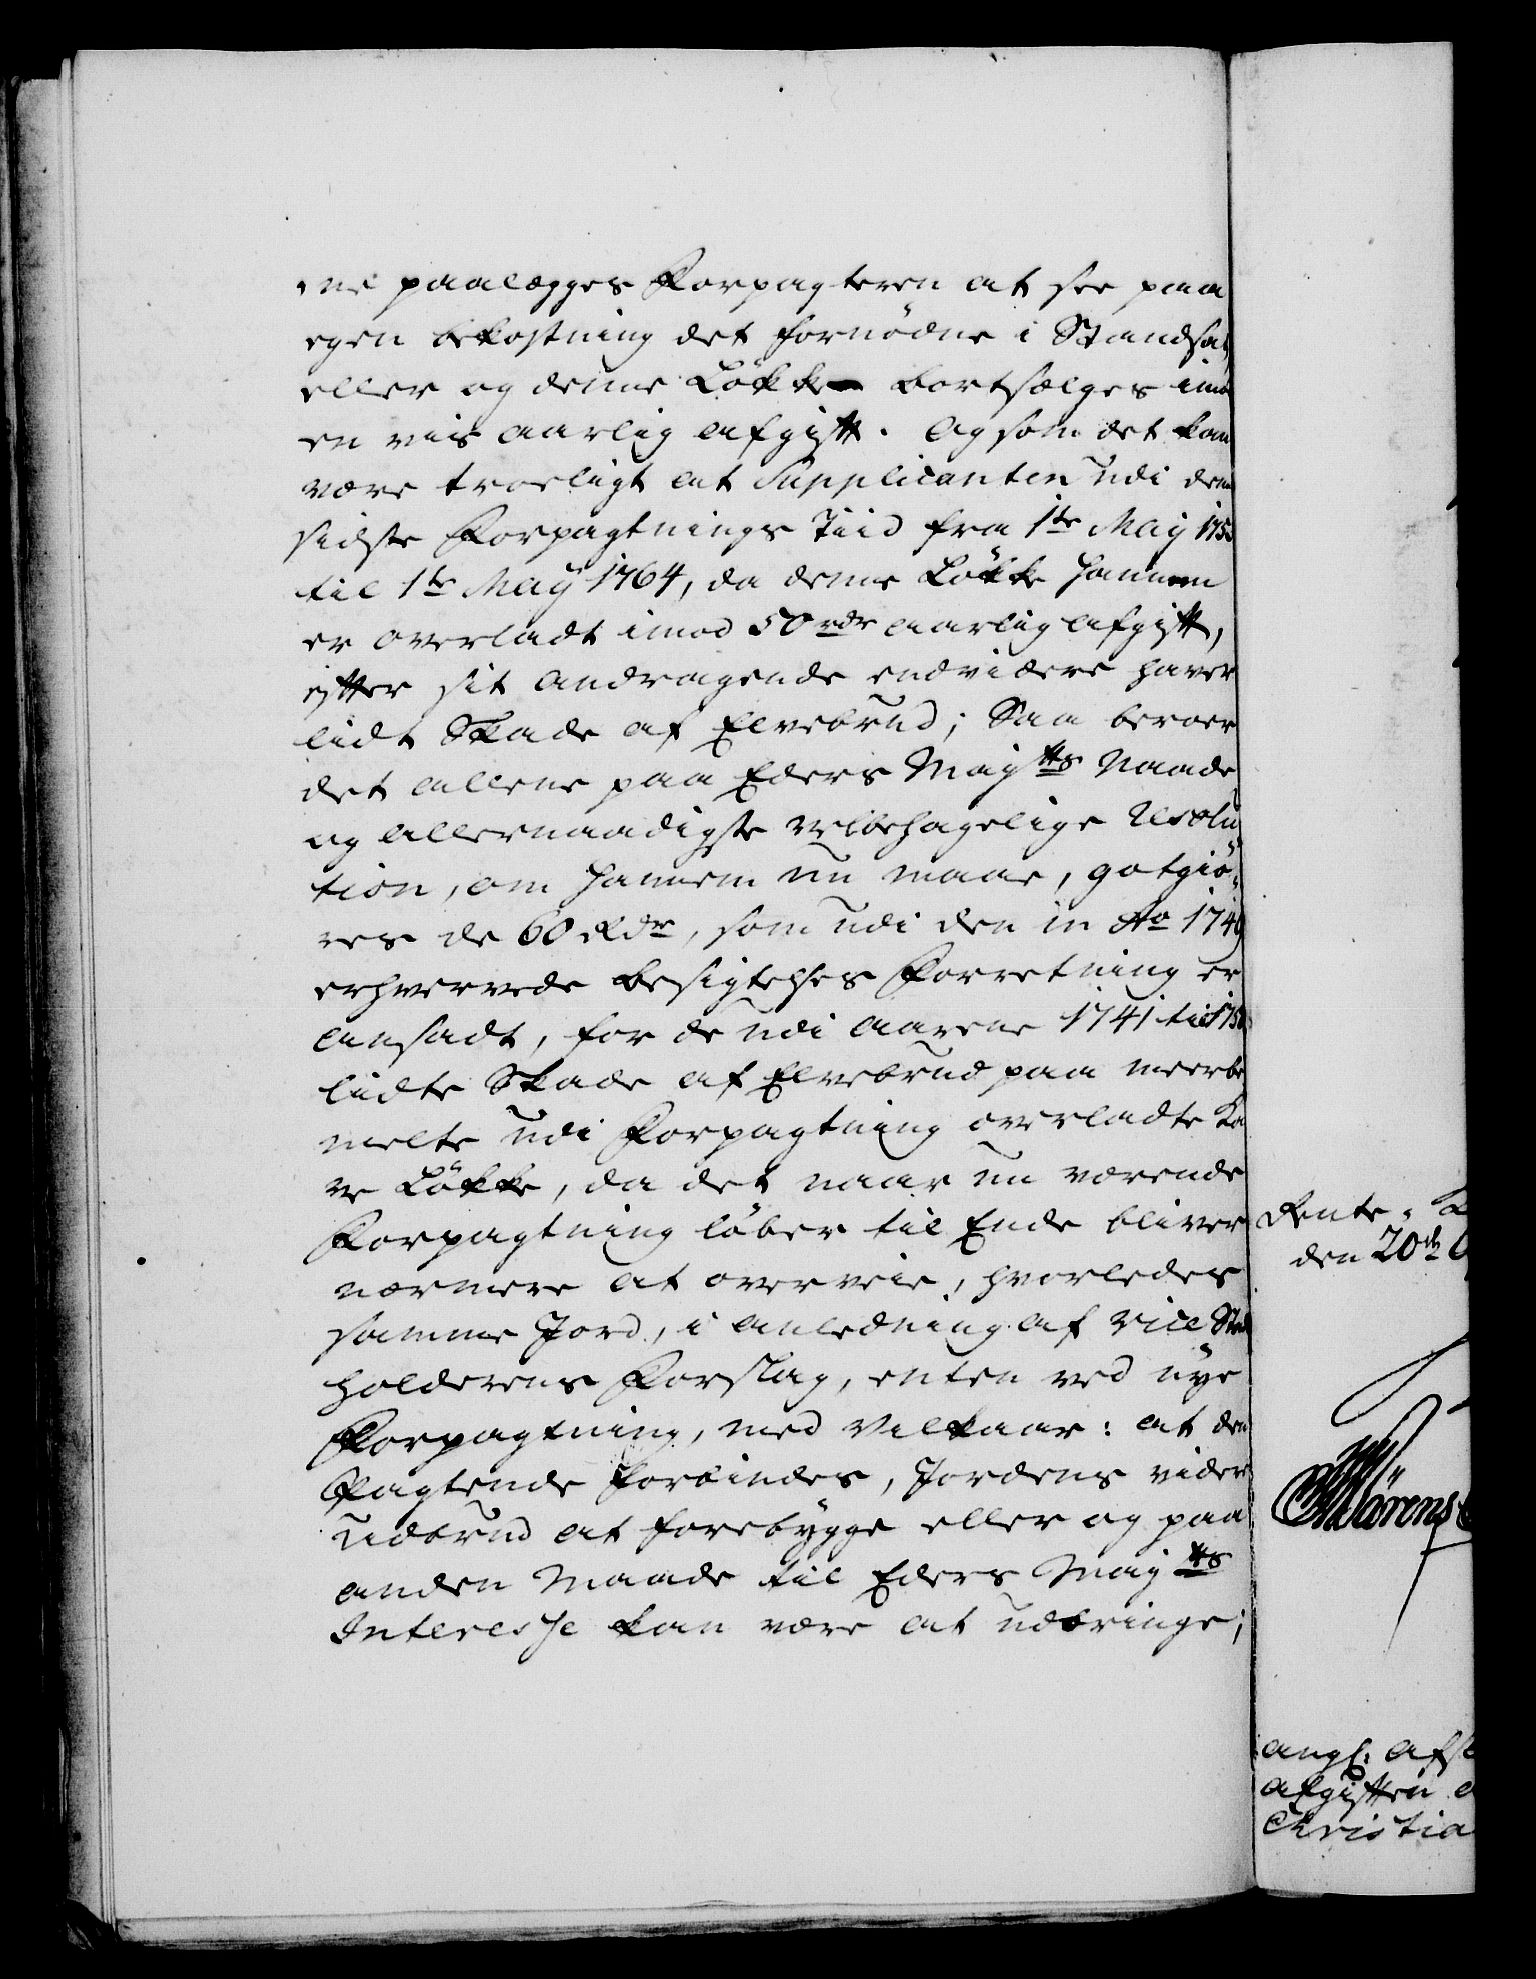 ne paalegges Forpagteren at see paa
egen bekostning det fornødne i Standsat,
eller og denne Løkke bortselges imod
en vis aarlig afgift. Og som det kan
være troeligt at Supplicanten udi den
sidste Forpagtnings Tiid fra 1te Maij 1755
til 1te Maij 1764, da denne Løkke hannem
er overladt imod 50 rdr aarlig afgift,
efter sit andragende endvidere haver
lidt Skade af Elvebrud; Saa beroer
det allene paa Eders Majtts Naade
og allernaadigste velbehagelige Resolu
tion, om hannem nu maae, gotgiø-
res de 60 Rdr, som udi den in Ao 1749
erhvervede besigtelses Forretning er
ansadt, for de udi aarene 1741 til 175
lidte Skade af Elvebrud paa meerbe
melte udi Forpagtning overladte Ko
ve Løkke, da det naar nu værende
Forpagtning løber til Ende bliver
nærmere at overveie, hvorledes
samme Jord, i anledning af Vice Stat
holderens Forslag, enten ved nye
Forpagtning, med Vilkaar: at den
Pagtende forbindes, Jordens videre
udbrud at forebygge eller og paa
anden Maade til Eders Majtts
Interesse kan være at udbringe;
Rente-K
den 20de O
Mørens
angl: afsl
afgiften
Christia